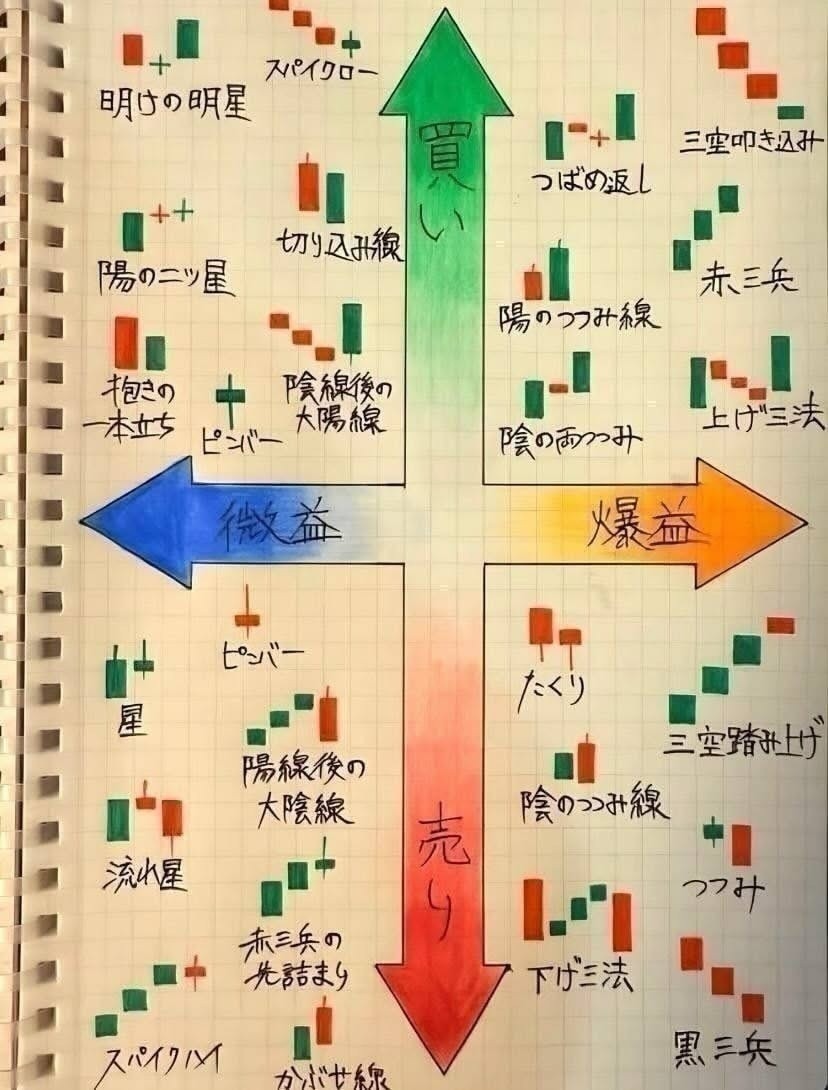 スパイクロー
明けの明星
買い
三空叩き込み
つばめ返し
切り込み線
陽の二ツ星
赤三兵
陽のつつみ線
抱きの
一本立ち
ピンバー
陰線後の
大陽線
陰の両つつみ
上げ三法
微益
爆益
ピンバー
たくり
星
三空踏み上げ
陽線後の
大陰線
陰のつつみ線
売り
流れ星
つつみ
赤三兵の
先詰まり
下げ三法
スパイクハイ
黒三兵
かぶせ線